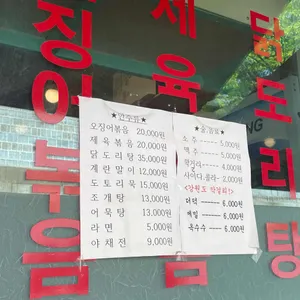 오징어볶음
제육볶음
닭도리탕
★안주류★
오징어볶음 20,000원
제육볶음 20,000원
닭도리탕 35,000원
계란말이 12,000원
도토리묵 15,000원
조개탕 13,000원
어묵탕 13,000원
라면 5,000원
야채전 9,000원
★술/음료★
소주 - 5,000원
맥주 - 5,000원
막걸리 - 4,000원
사이다,콜라 - 2,000원
<강원도 막걸리!>
더덕 - 6,000원
메밀 - 6,000원
옥수수 - 6,000원